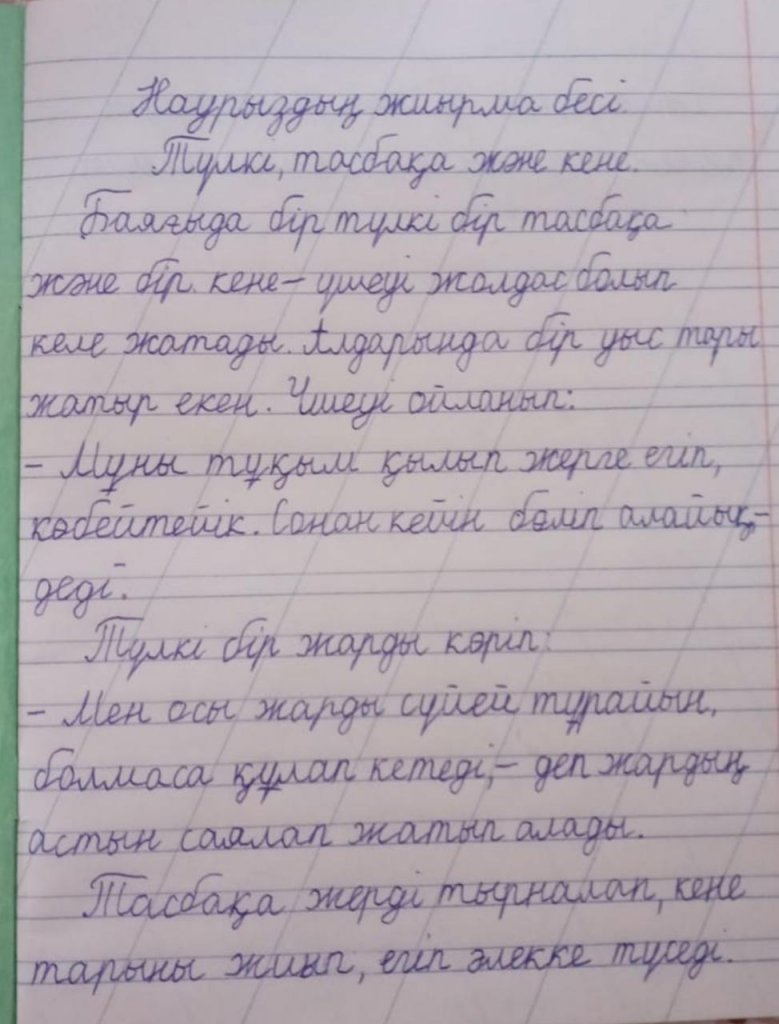 Наурыздың жиырма бесі.
Түлкі, тасбақа және кене.
Баяғыда бір түлкі бір тасбақа
және бір кене – үшеуі жолдас болып
келе жатады. Алдарында бір уыс тары
жатыр екен. Үшеуі ойланып:
- Мұны тұқым қылып жерге егіп,
көбейтейік. Сонан кейін бөліп алайық, -
деді.
Түлкі бір жарды көріп:
- Мен осы жарды сүйей тұрайын,
болмаса құлап кетеді, - деп жардың
астын саялап жатып алады.
Тасбақа жерді тырналап, кене
тарыны жиып, егіп әлекке түседі.